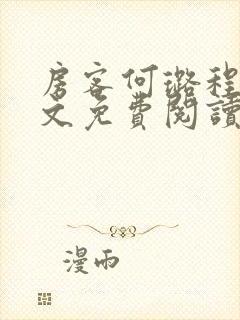 房客何璐程
文免費閱讀
漫雨